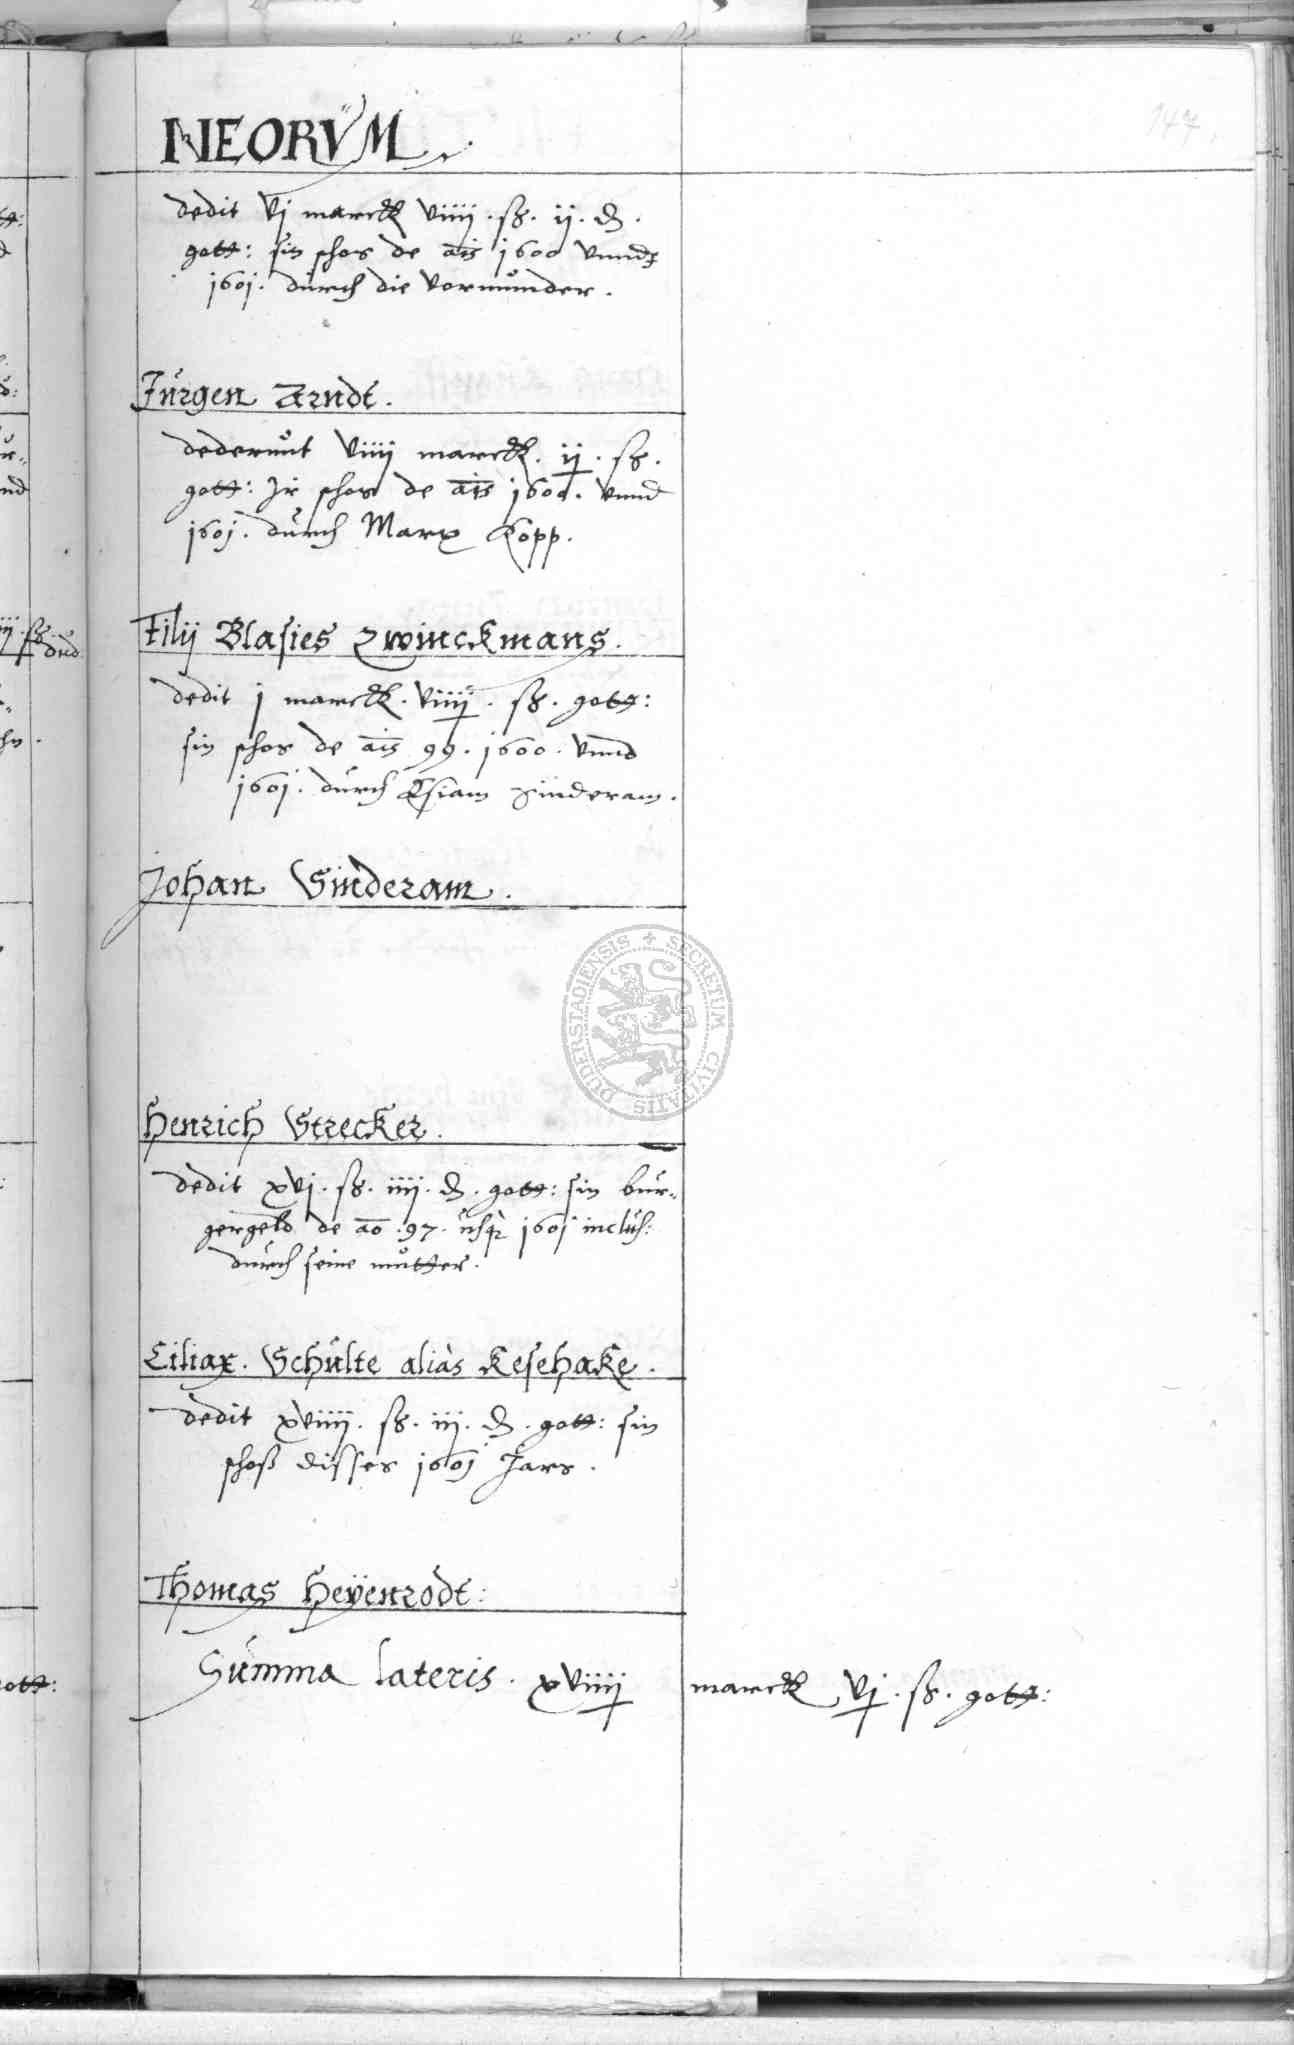 NEORVM
147.
dedit vj marck viiij . ß . ij . d .
gott: sin schos de aīs 1600 vnnd
1601 . durch die vormunder .
Jürgen Arndt .
dederunt viiij marck . ij . ß .
gott: Jr schos de aīs 1600 . vnnd
1601 . durch Marx Kopp .
Filij Blasies Zwinckmans .
dedit j marck . viiij . ß . gott:
sin schos de aīs 99 . 1600 . vnnd
1601 . durch Esiam Sinderam .
Johan Sinderam .
SECRETUM CIVITATIS DUDERSTADIENSIS
Henrich Strecker .
dedit xvj . ß . iiij . d . gott: sin bur-
gergeld de ao . 97 . usq 1601 inclus:
durch seine mutter .
Ciliax . Schulte aliàs Kesehake .
dedit xviiij . ß . iij . d . gott: sin
schoß disses 1601 Jars .
Thomas Heÿenrodt :
Summa lateris . xviiij marck vj . ß . gott: